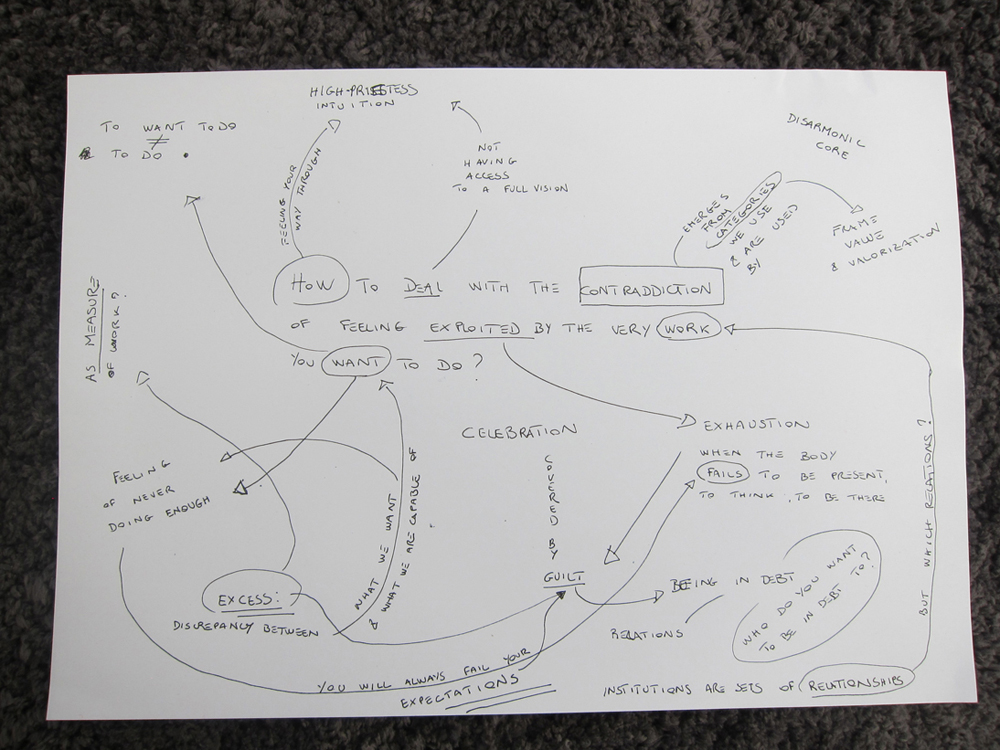 HIGH-PRIESTESS
INTUITION
TO WANT TO DO
≠
& TO DO .
FEELING YOUR
WAY THROUGH
NOT
HAVING
ACCESS
TO A FULL VISION
DISARMONIC
CORE
EMERGES
FROM
CATEGORIES
WE USE
& ARE USED
BY
FRAME
VALUE
& VALORIZATION
HOW TO DEAL WITH THE CONTRADDICTION
OF FEELING EXPLOITED BY THE VERY WORK
YOU WANT TO DO?
AS MEASURE
OF WORK?
CELEBRATION
COVERED BY
GUILT
EXHAUSTION
WHEN THE BODY
FAILS TO BE PRESENT,
TO THINK, TO BE THERE
FEELING
OF NEVER
DOING ENOUGH
EXCESS:
DISCREPANCY BETWEEN
WHAT WE WANT
& WHAT WE ARE CAPABLE OF
BEING IN DEBT
RELATIONS
WHO DO YOU WANT
TO BE IN DEBT TO?
BUT WHICH RELATIONS?
YOU WILL ALWAYS FAIL YOUR
EXPECTATIONS
INSTITUTIONS ARE SETS OF RELATIONSHIPS